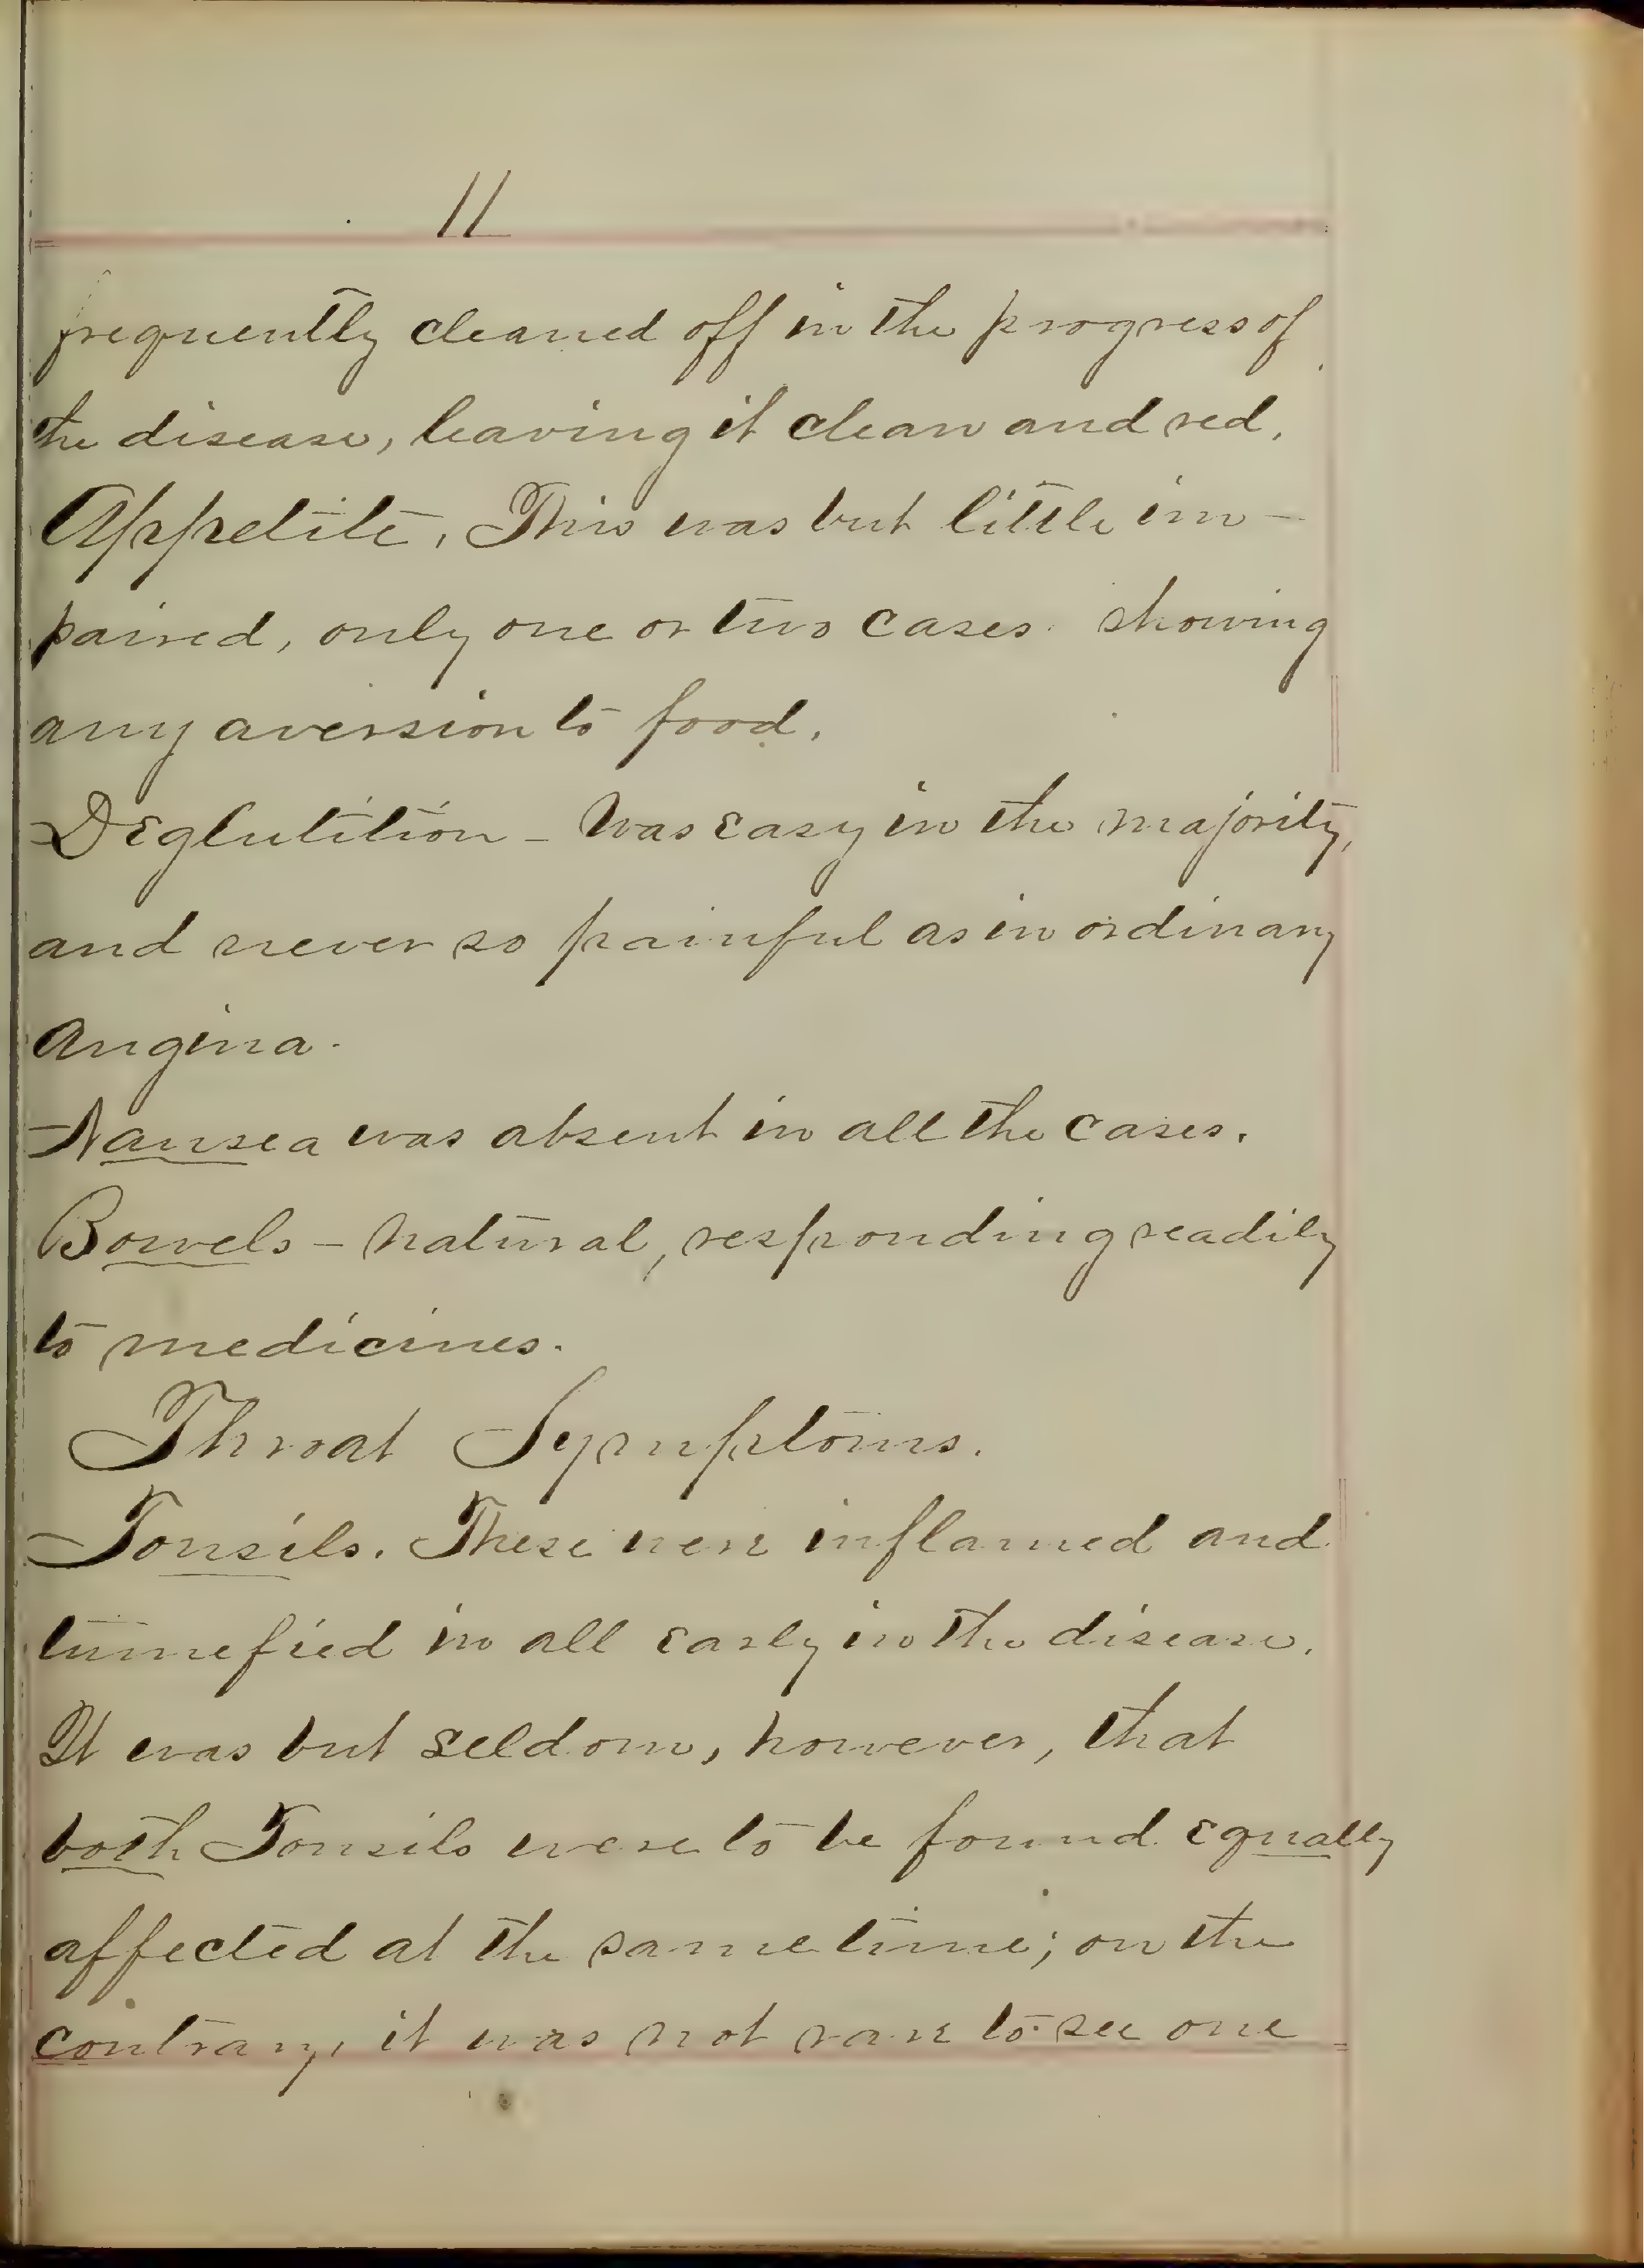 11
frequently cleaned off in the progress of
the disease, leaving it clean and red.
Appetite. This was but little im-
paired, only one or two cases showing
any aversion to food.
Deglutition - Was easy in the majority,
and never so painful as in ordinary
Angina.
Nausea was absent in all the cases.
Bowels - natural, responding readily
to medicines.
Throat Symptoms.
Tonsils. These were inflamed and
tumefied in all early in the disease.
It was but seldom, however, that
both Tonsils were to be found equally
affected at the same time; on the
contrary, it was not rare to see one